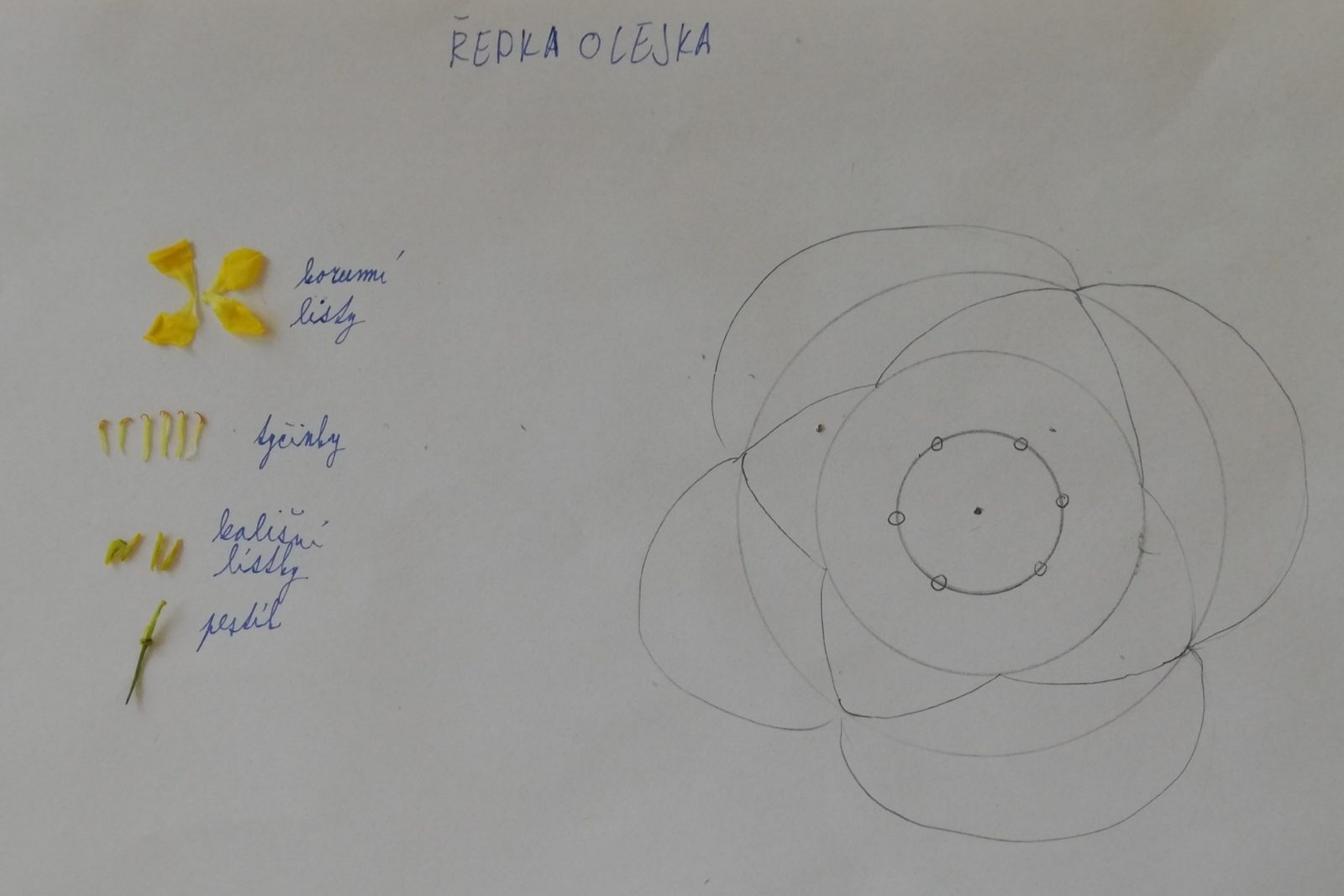 ŘEPKA OLEJKA
korunní
listy
tyčinky
kališní
lístky
pestík